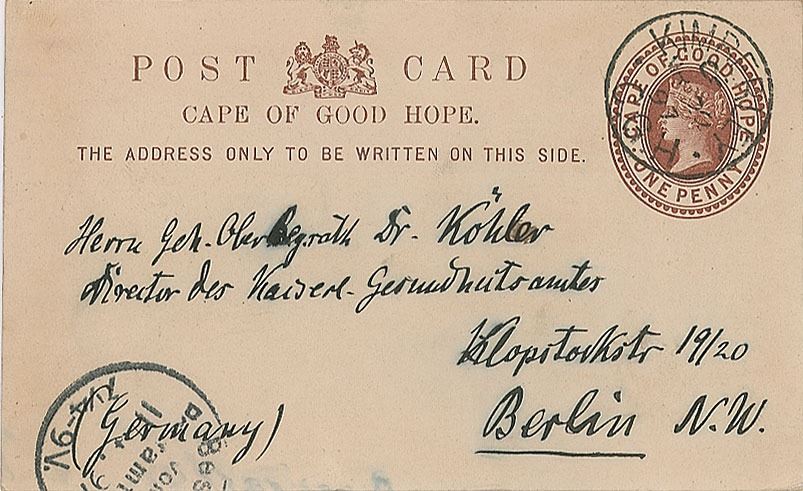 POST CARD
CAPE OF GOOD HOPE.
THE ADDRESS ONLY TO BE WRITTEN ON THIS SIDE.
CAPE OF GOOD HOPE
ONE PENNY
Herrn Geh. Oberregrath Dr. Köhler
Director des Kaiserl. Gesundheitsamtes
Klopstockstr 19/20
Berlin N.W.
(Germany)
Bes
vom